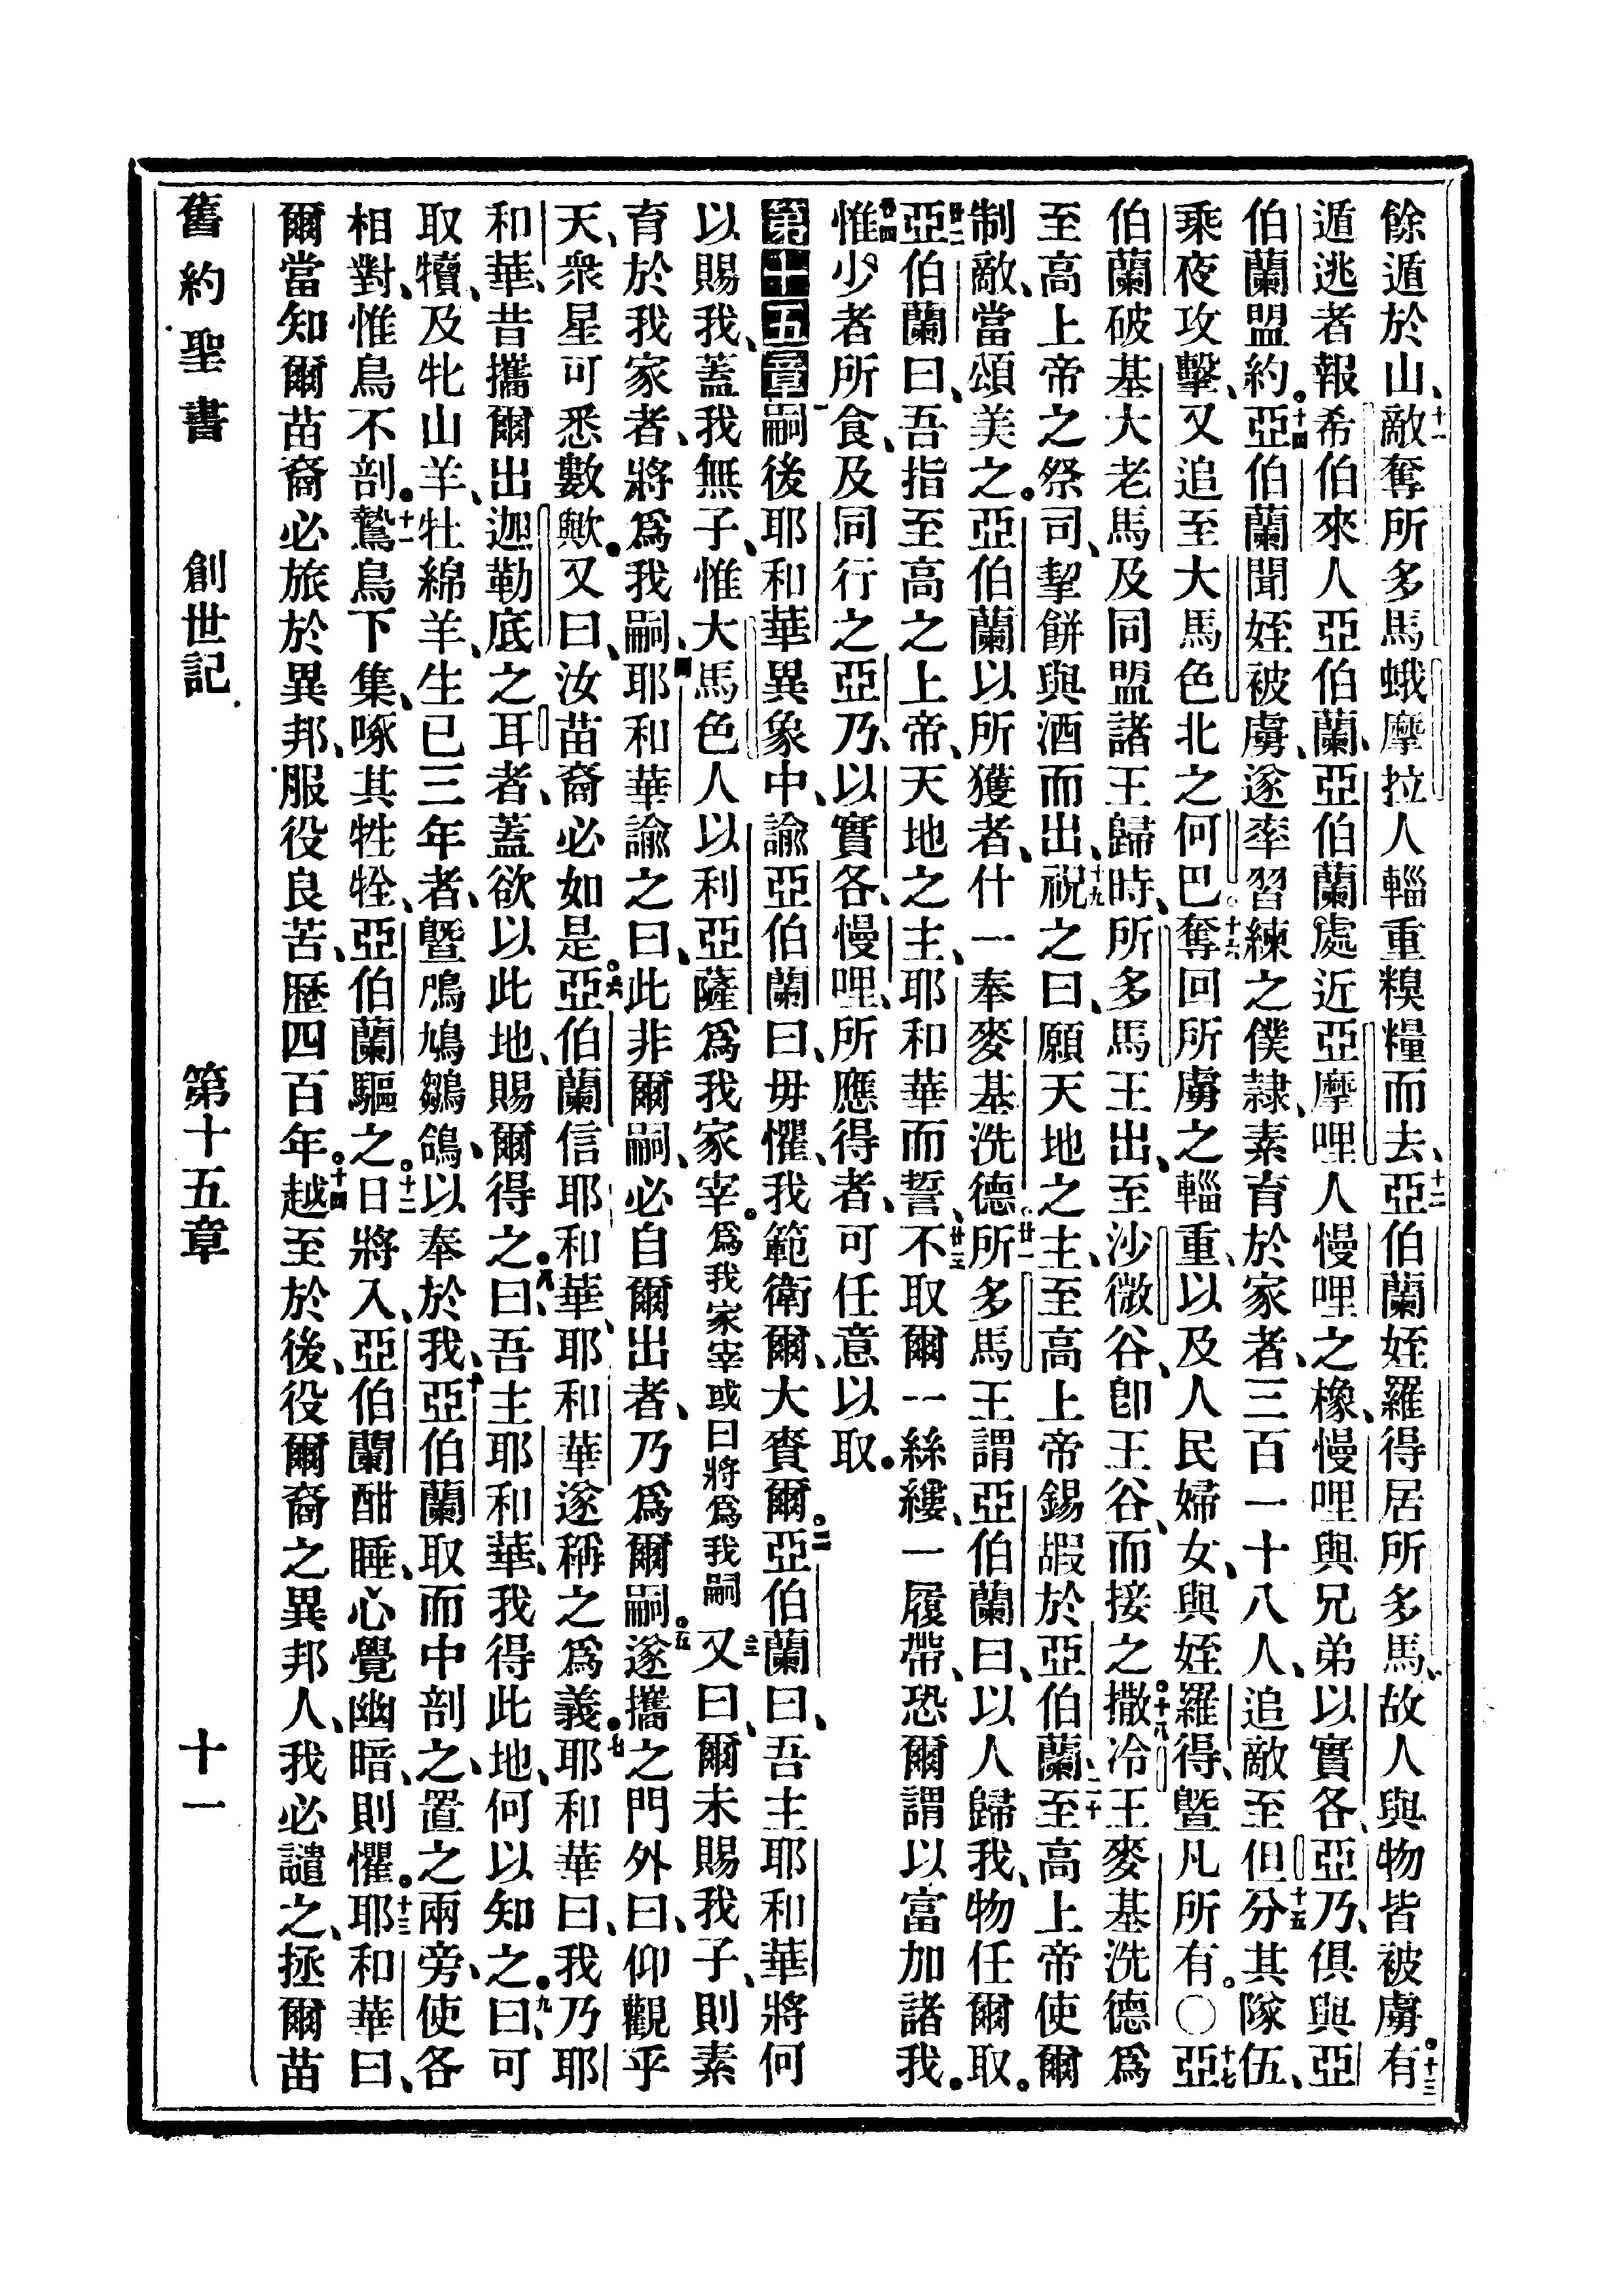 餘遁於山、十一敵奪所多馬蛾摩拉人輜重糗糧而去、十二亞伯蘭姪羅得居所多馬、故人與物皆被虜。十三有
遁逃者報希伯來人亞伯蘭、亞伯蘭處近亞摩哩人慢哩之橡、慢哩與兄弟以實各、亞乃、俱與亞
伯蘭盟約。十四亞伯蘭聞姪被虜、遂率習練之僕隸、素育於家者、三百一十八人、追敵至但、十五分其隊伍、
乘夜攻擊、又追至大馬色北之何巴、十六奪回所虜之輜重、以及人民婦女、與姪羅得、曁凡所有。〇十七亞
伯蘭破基大老馬及同盟諸王歸時、所多馬王出、至沙微谷、卽王谷、而接之。十八撒冷王麥基洗德爲
至高上帝之祭司、挈餅與酒而出、十九祝之曰、願天地之主、至高上帝錫嘏於亞伯蘭、二十至高上帝使爾
制敵、當頌美之。亞伯蘭以所獲者、什一奉麥基洗德。廿一所多馬王謂亞伯蘭曰、以人歸我、物任爾取。
廿二亞伯蘭曰、吾指至高之上帝、天地之主、耶和華而誓、廿三不取爾一絲縷、一履帶、恐爾謂以富加諸我。
廿四惟少者所食、及同行之亞乃、以實各、慢哩、所應得者、可任意以取。
第十五章 一嗣後耶和華異象中、諭亞伯蘭曰、毋懼、我範衛爾、大賚爾。二亞伯蘭曰、吾主耶和華將何
以賜我、蓋我無子、惟大馬色人以利亞薩爲我家宰。爲我家宰或曰將爲我嗣 三又曰、爾未賜我子、則素
育於我家者、將爲我嗣、四耶和華諭之曰、此非爾嗣、必自爾出者、乃爲爾嗣。五遂攜之門外曰、仰觀乎
天、衆星可悉數歟。又曰、汝苗裔必如是。六亞伯蘭信耶和華、耶和華遂稱之爲義。七耶和華曰、我乃耶
和華、昔攜爾出迦勒底之耳者、蓋欲以此地、賜爾得之。八曰、吾主耶和華、我得此地、何以知之。九曰、可
取犢、及牝山羊、牡綿羊、生已三年者、曁鳲鳩鶵鴿、以奉於我、十亞伯蘭取而中剖之、置之兩旁、使各
相對、惟鳥不剖。十一鷙鳥下集、啄其牲牷、亞伯蘭驅之。十二日將入、亞伯蘭酣睡、心覺幽暗、則懼。十三耶和華曰、
爾當知爾苗裔必旅於異邦、服役良苦、歷四百年。十四越至於後、役爾裔之異邦人、我必譴之、拯爾苗
舊約聖書 創世記 第十五章 十一